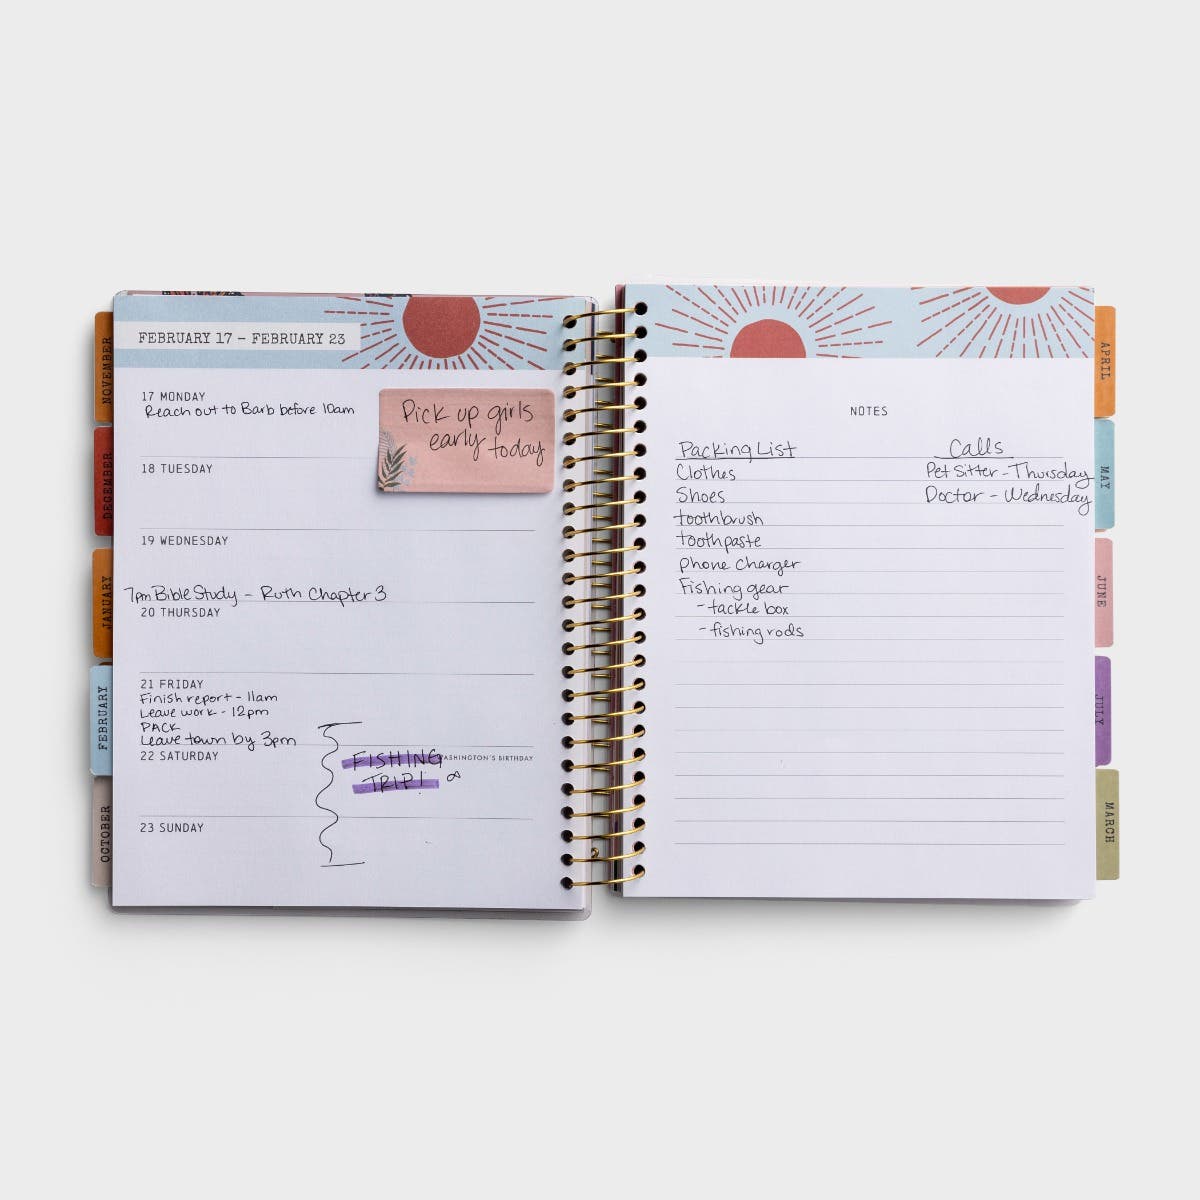 FEBRUARY 17 – FEBRUARY 23
17 MONDAY
Reach out to Barb before 10am
Pick up girls
early today
18 TUESDAY
19 WEDNESDAY
7pm Bible Study - Ruth Chapter 3
20 THURSDAY
21 FRIDAY
Finish report - 11am
Leave work - 12pm
PACK
Leave town by 3pm
22 SATURDAY
WASHINGTON'S BIRTHDAY
FISHING
TRIP!
23 SUNDAY
NOVEMBER
DECEMBER
JANUARY
FEBRUARY
OCTOBER
NOTES
Packing List
Clothes
Shoes
toothbrush
toothpaste
phone charger
Fishing gear
- tackle box
- fishing rods
Calls
Pet Sitter - Thursday
Doctor - Wednesday
APRIL
MAY
JUNE
JULY
MARCH